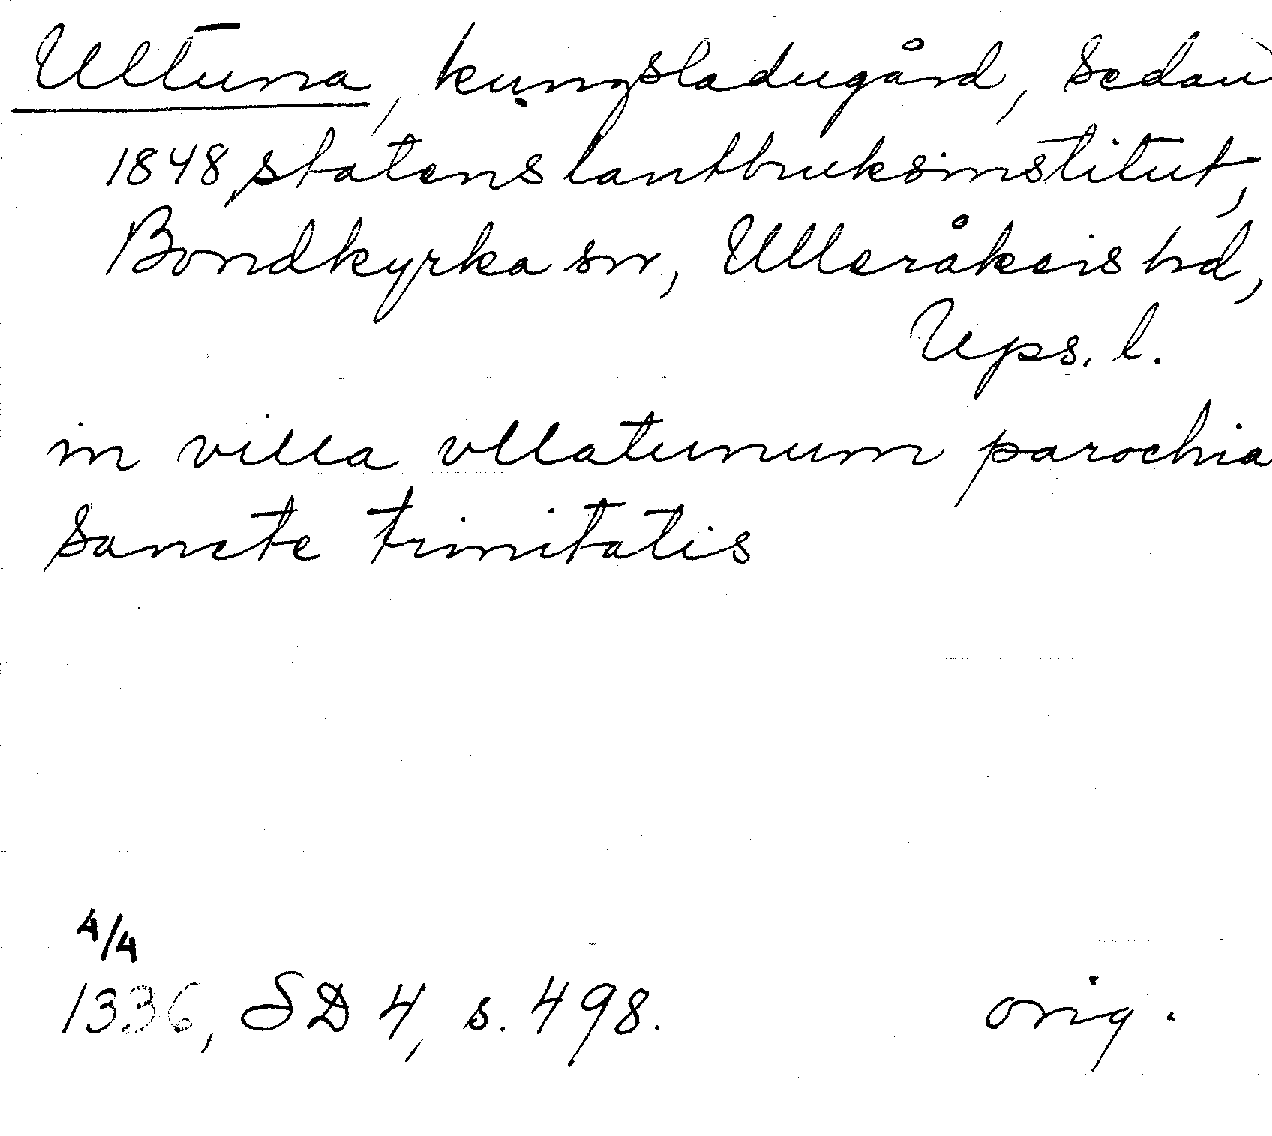 Ultuna, kungsladugård, sedan
1848 statens lantbruksinstitut,
Bondkyrka sn, Ulleråkers hd,
Ups. l.
in villa vllatunum parochia
sancte trinitatis
4/4
1336, SD 4, s. 498. orig.